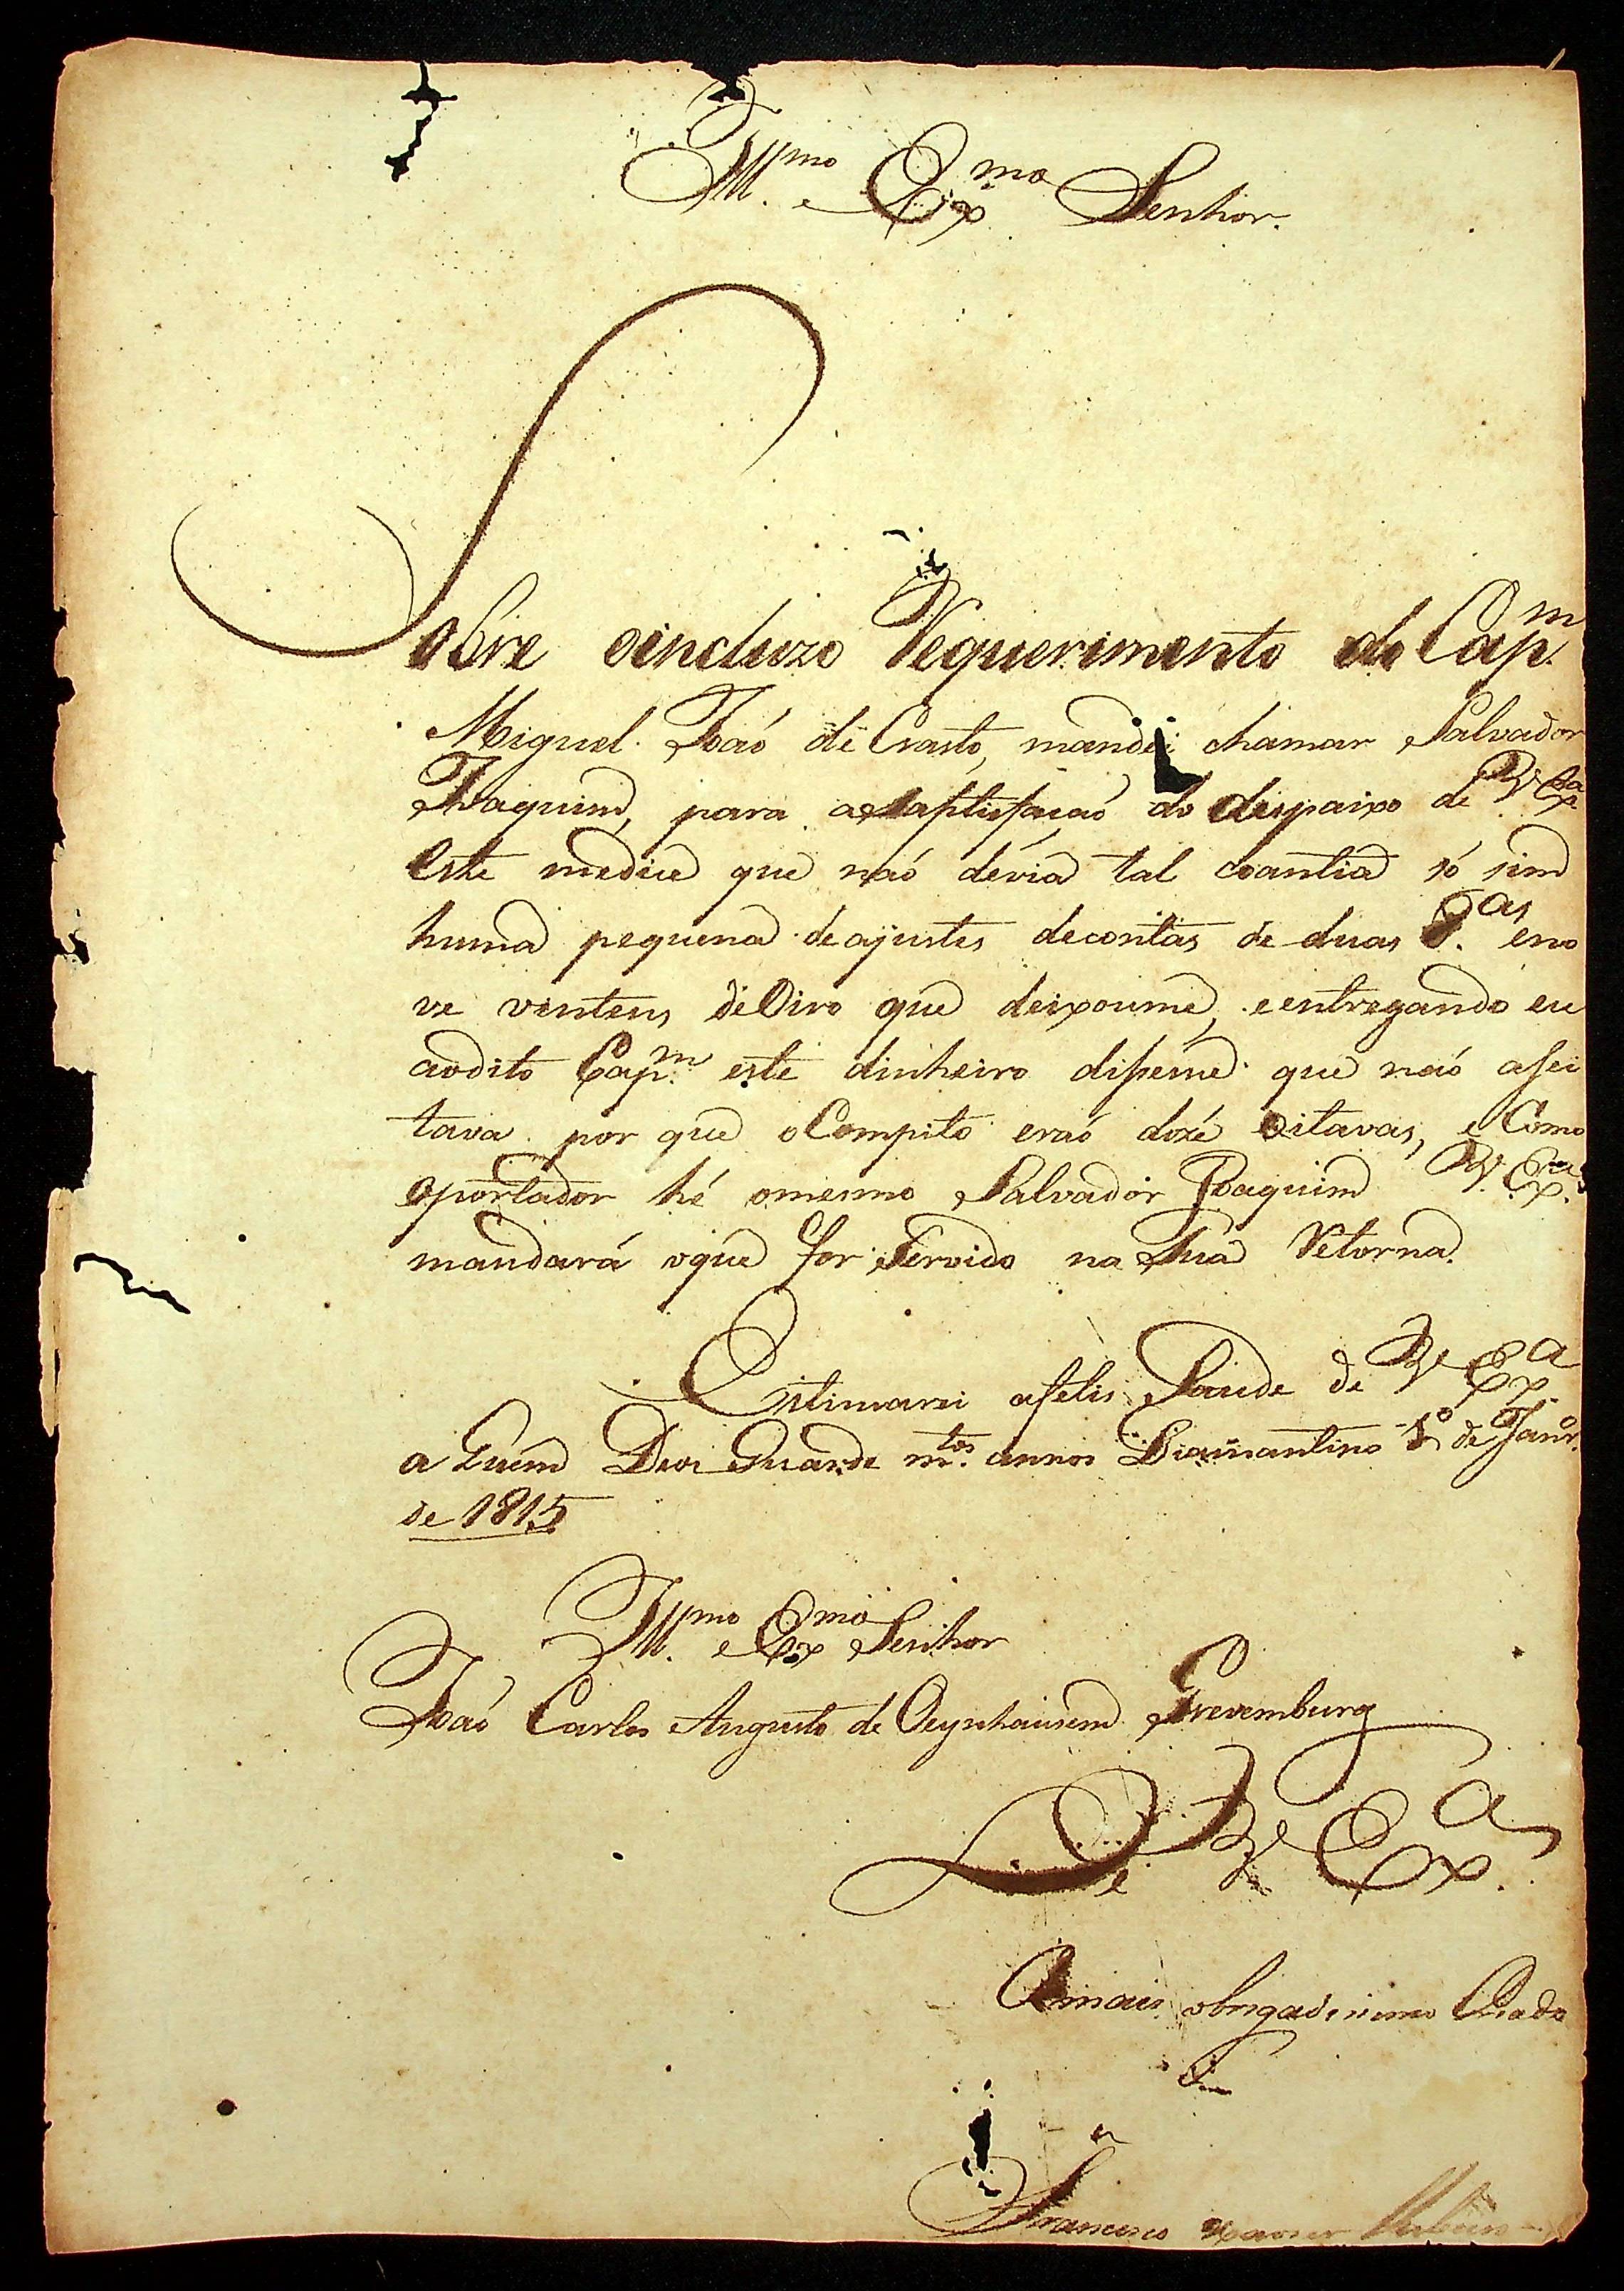 Ill.mo e Ex.mo Senhor.
Sobre oincluzo Requerimento do Cap.m
Miguel João de Crasto, mandei chamar Salvador
Joaquim, para a satisfação do dispaixo de V Ex.a
este medice que não devia tal coantia só sim
huma pequena de ajustes decontas de duas 8.as eno
ve vintens deOiro que deixoume, e entregando eu
aodito Cap.m este dinheiro disseme que não asei
tava por que o Compito erão doze oitavas, e Como
oportador hé omesmo Salvador Joaquim V. Ex.a
mandará oque for Servido na Sua Retorna.
Estimarei afelis Saude de V Ex.a
a Quem Deos Guarde m.tos annos Diamantino 1º de Janr.o
de 1815
Ill.mo e Ex.mo Senhor
João Carlos Augusto de Oeynhausem Grevemburg
De V Ex.a
O mais obrigadissimo Criado
Francisco Xavier